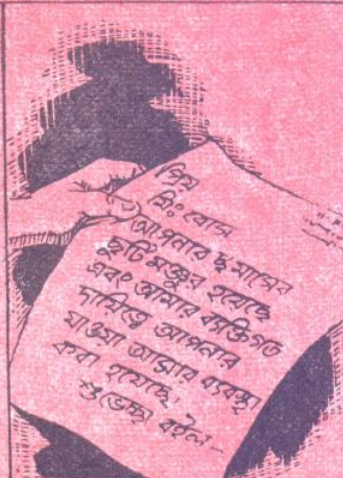 প্রিয়
মিঃ বোস
আপনার ছ মাসের
ছুটি মঞ্জুর হয়েছে
এবং আমার ব্যক্তিগত
দায়িত্বে আপনার
যাওয়া আসার ব্যবস্থা
করা হয়েছে।
শুভেচ্ছা রইল—